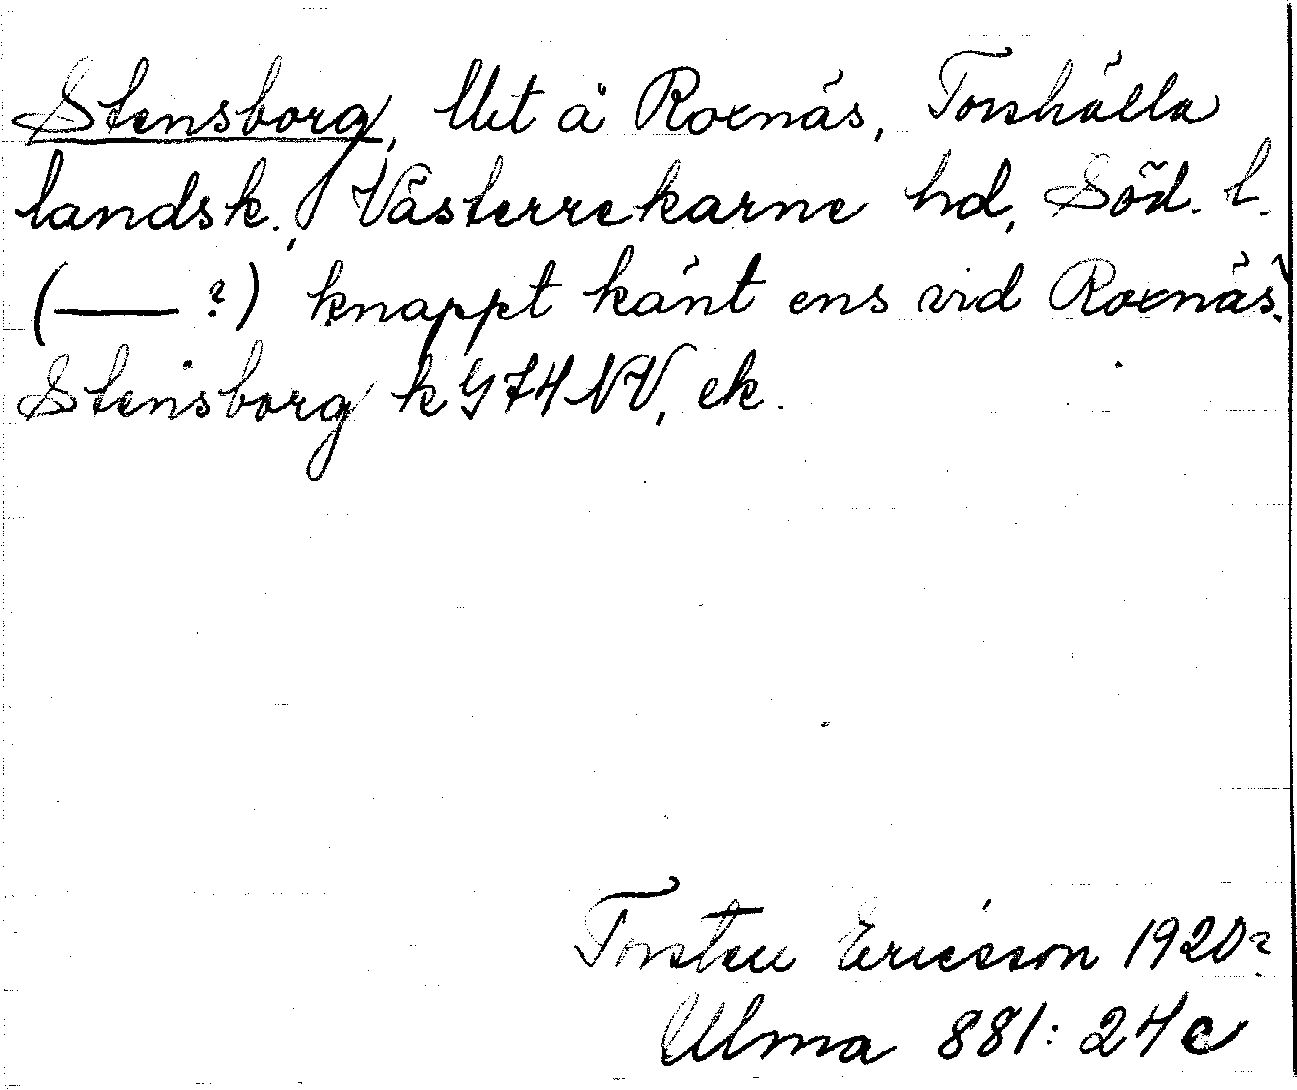 Stensborg, Utt å Roxnäs, Torshälla
landsk., Västerrekarne hd, Söd. l.
(—— ?) knappt känt ens vid Roxnäs.
Stensborg k G74NV, ek.
Torsten Ericsson 1920?
Ulma 881: 24c